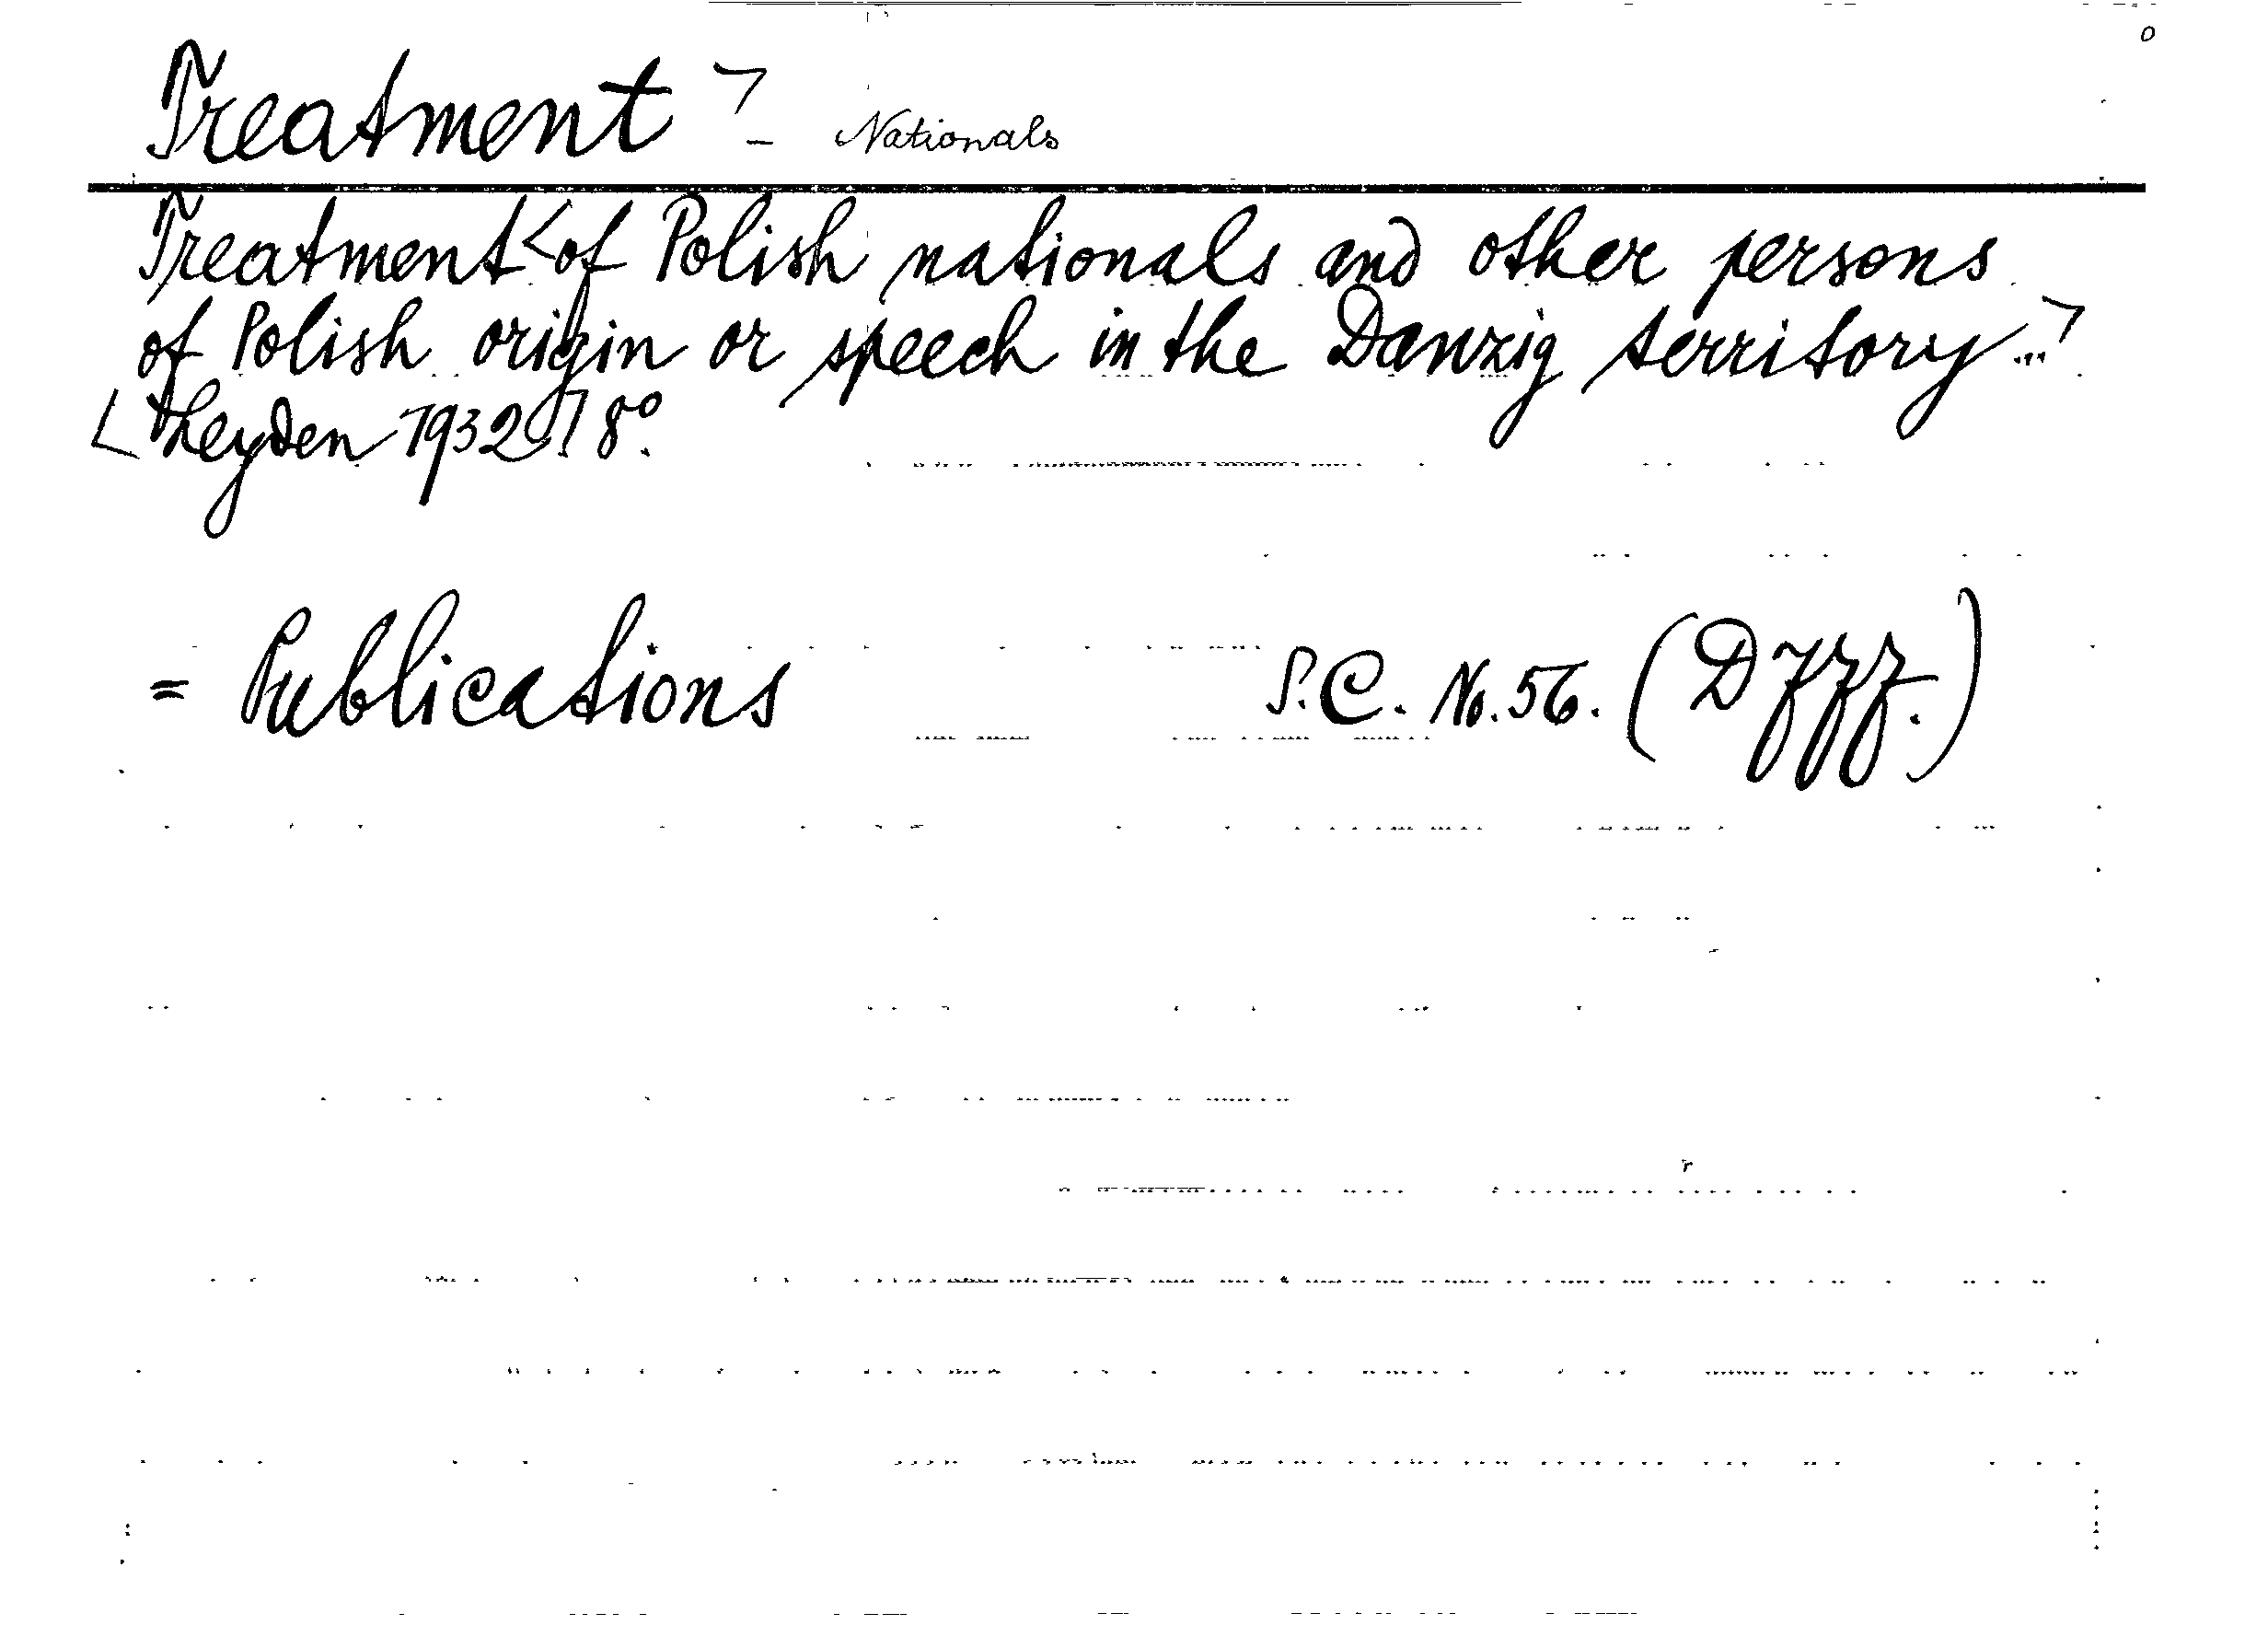 Treatment - Nationals
Treatment of Polish nationals and other persons
of Polish origin or speech in the Danzig territory...
Leyden 1932 8°.
= Publications P.C. No. 56.